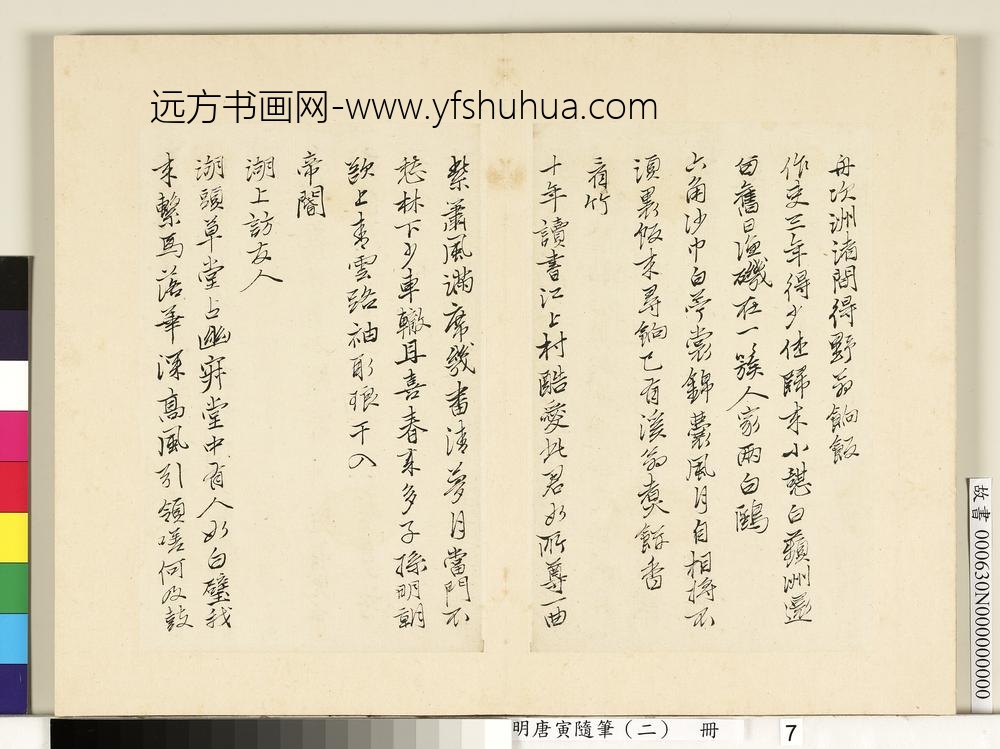 远方书画网-www.yfshuhua.com
舟次洲渚間得野翁餉飯
作吏三年得少休歸來小憩白蘋洲還
舊日漁磯在一簇人家兩白鷗
六角沙巾白苧裳錦囊風月自相將不
須裹飯來尋餉已有溪翁煮餅香
看竹
十年讀書江上村酷愛此君如所尊一曲
紫簫風滿席幾番清夢月當門不
愁林下少車轍且喜春來多子孫明朝
欲上青雲路袖取琅玕入
帝閽
湖上訪友人
湖頭草堂占幽寂堂中有人如白璧我
來繫馬落華深高風引領嗟何及鼓
故書 000630N000000000
明唐寅隨筆（二） 冊 7